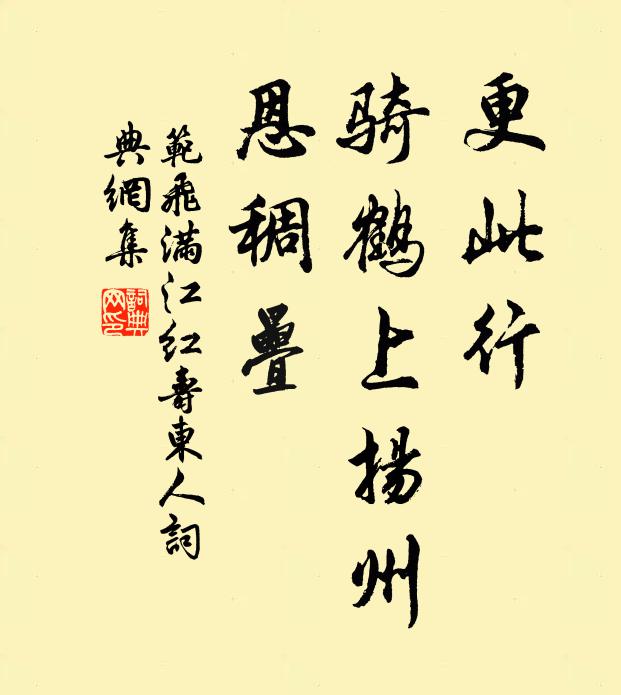 更此行
骑鹤上扬州
恩稠疊
範飛滿江红壽東人詞
典網集
詞典
网印